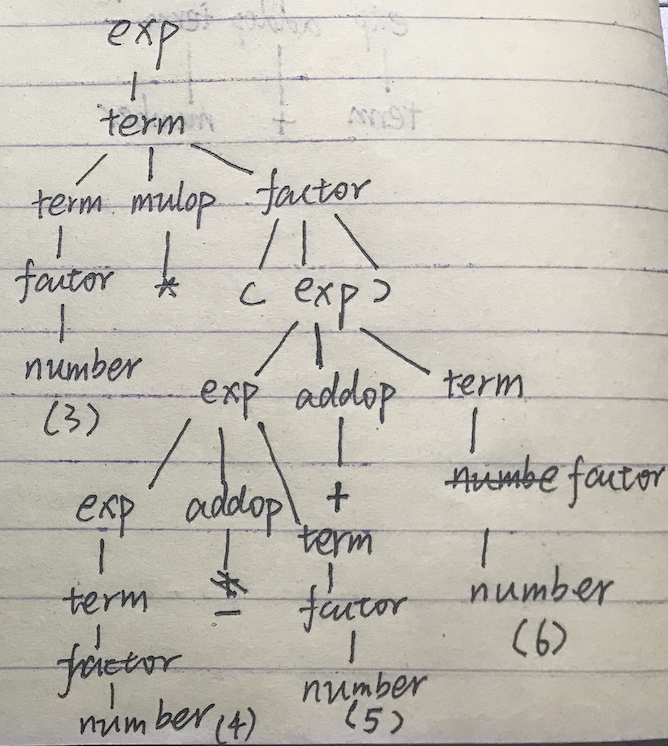 exp
term
term mulop factor
factor * ( exp )
number
(3)
exp addop term
+ factor
exp addop term
term - factor
number
(6)
factor
number (4)
number
(5)